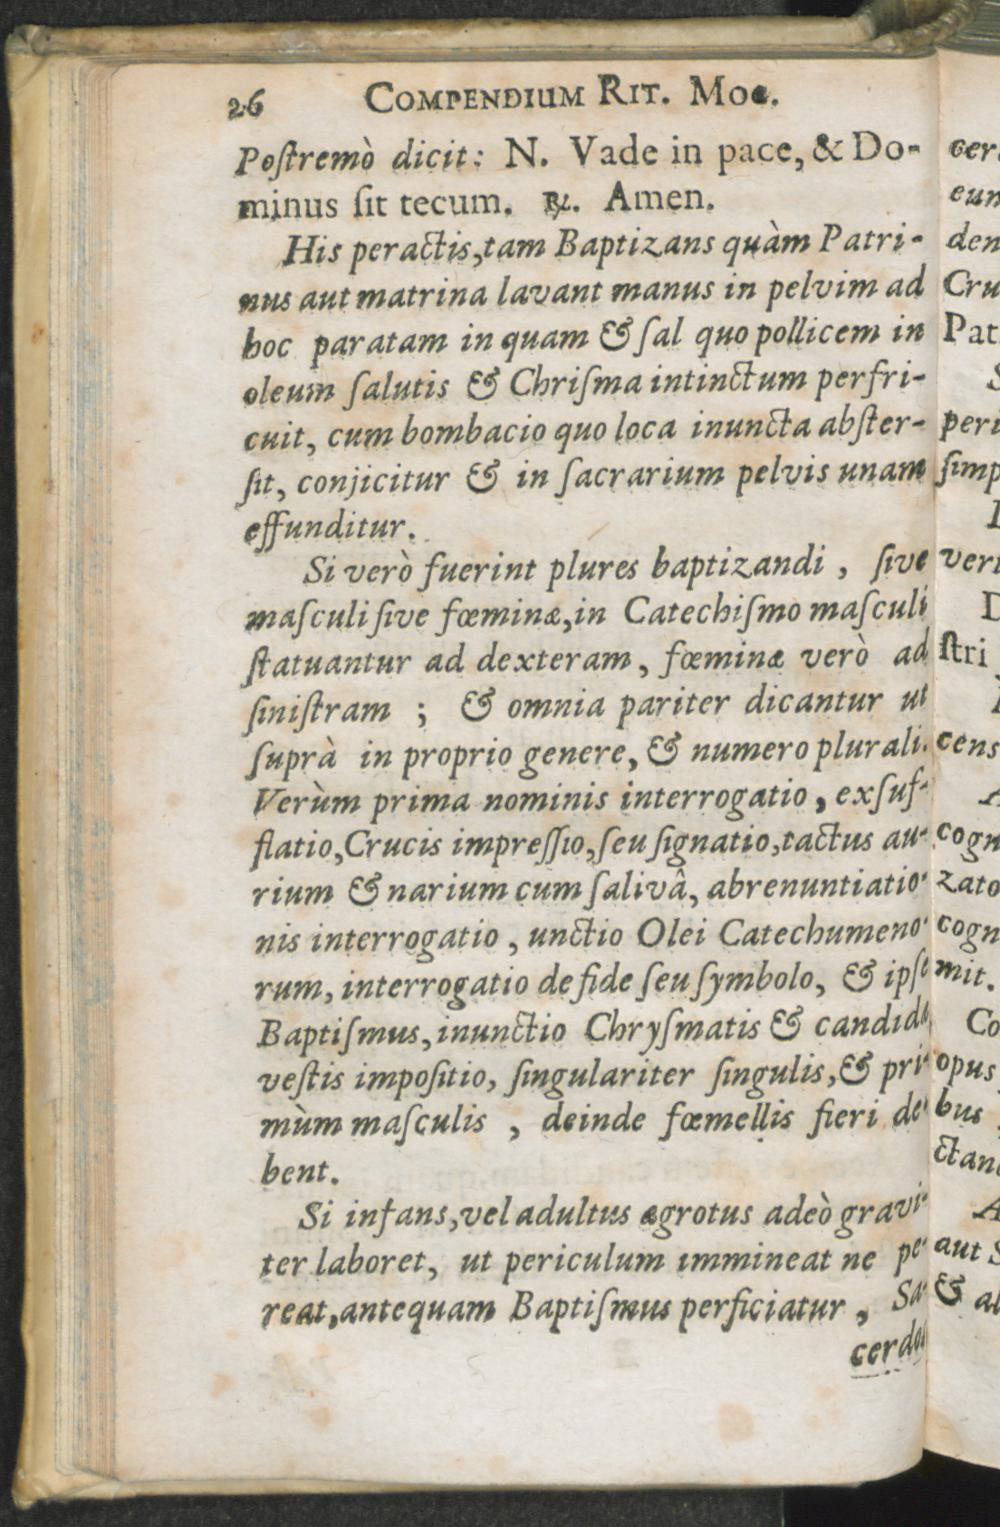 26 COMPENDIUM RIT. MOG.
Poſtremò dicit: N. Vade in pace, & Do-
minus ſit tecum. ℟. Amen.
His peractis, tam Baptizans quàm Patri-
nus aut matrina lavant manus in pelvim ad
hoc paratam in quam & ſal quo pollicem in
oleum ſalutis & Chriſma intinctum perfri-
cuit, cum bombacio quo loca inuncta abſter-
ſit, conjicitur & in ſacrarium pelvis unam
effunditur.
Si verò fuerint plures baptizandi, ſive
maſculi ſive fœminæ, in Catechiſmo maſculi
ſtatuantur ad dexteram, fœminæ verò ad
ſiniſtram; & omnia pariter dicantur ut
ſuprà in proprio genere, & numero plurali.
Verùm prima nominis interrogatio, exſuf-
flatio, Crucis impreſſio, ſeu ſignatio, tactus au-
rium & narium cum ſalivâ, abrenuntiatio-
nis interrogatio, unctio Olei Catechumeno-
rum, interrogatio de fide ſeu ſymbolo, & ipſe
Baptiſmus, inunctio Chryſmatis & candidæ
veſtis impoſitio, ſingulariter ſingulis, & pri-
mùm maſculis, deinde fœmellis fieri de-
bent.
Si infans, vel adultus ægrotus adeò gravi-
ter laboret, ut periculum immineat ne pe-
reat, antequam Baptiſmus perficiatur, Sa-
cerdos
cer
eun
den
Cru
Pat
peri
ſimp
veri
D
ſtri
cens
A
cogn
zato
cogn
mit.
Co
opus
bus
ctan
A
aut S
& al